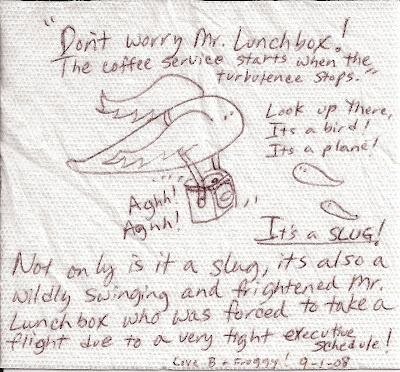 "Don't worry Mr. Lunchbox!
The coffee service starts when the
turbulence stops."
Look up there,
It's a bird!
It's a plane!
Aghh!
Aghh!
It's a SLUG!
Not only is it a slug, its also a
wildly swinging and frightened Mr.
Lunchbox who was forced to take a
flight due to a very tight executive
schedule!
Love B + Froggy! 9-1-08